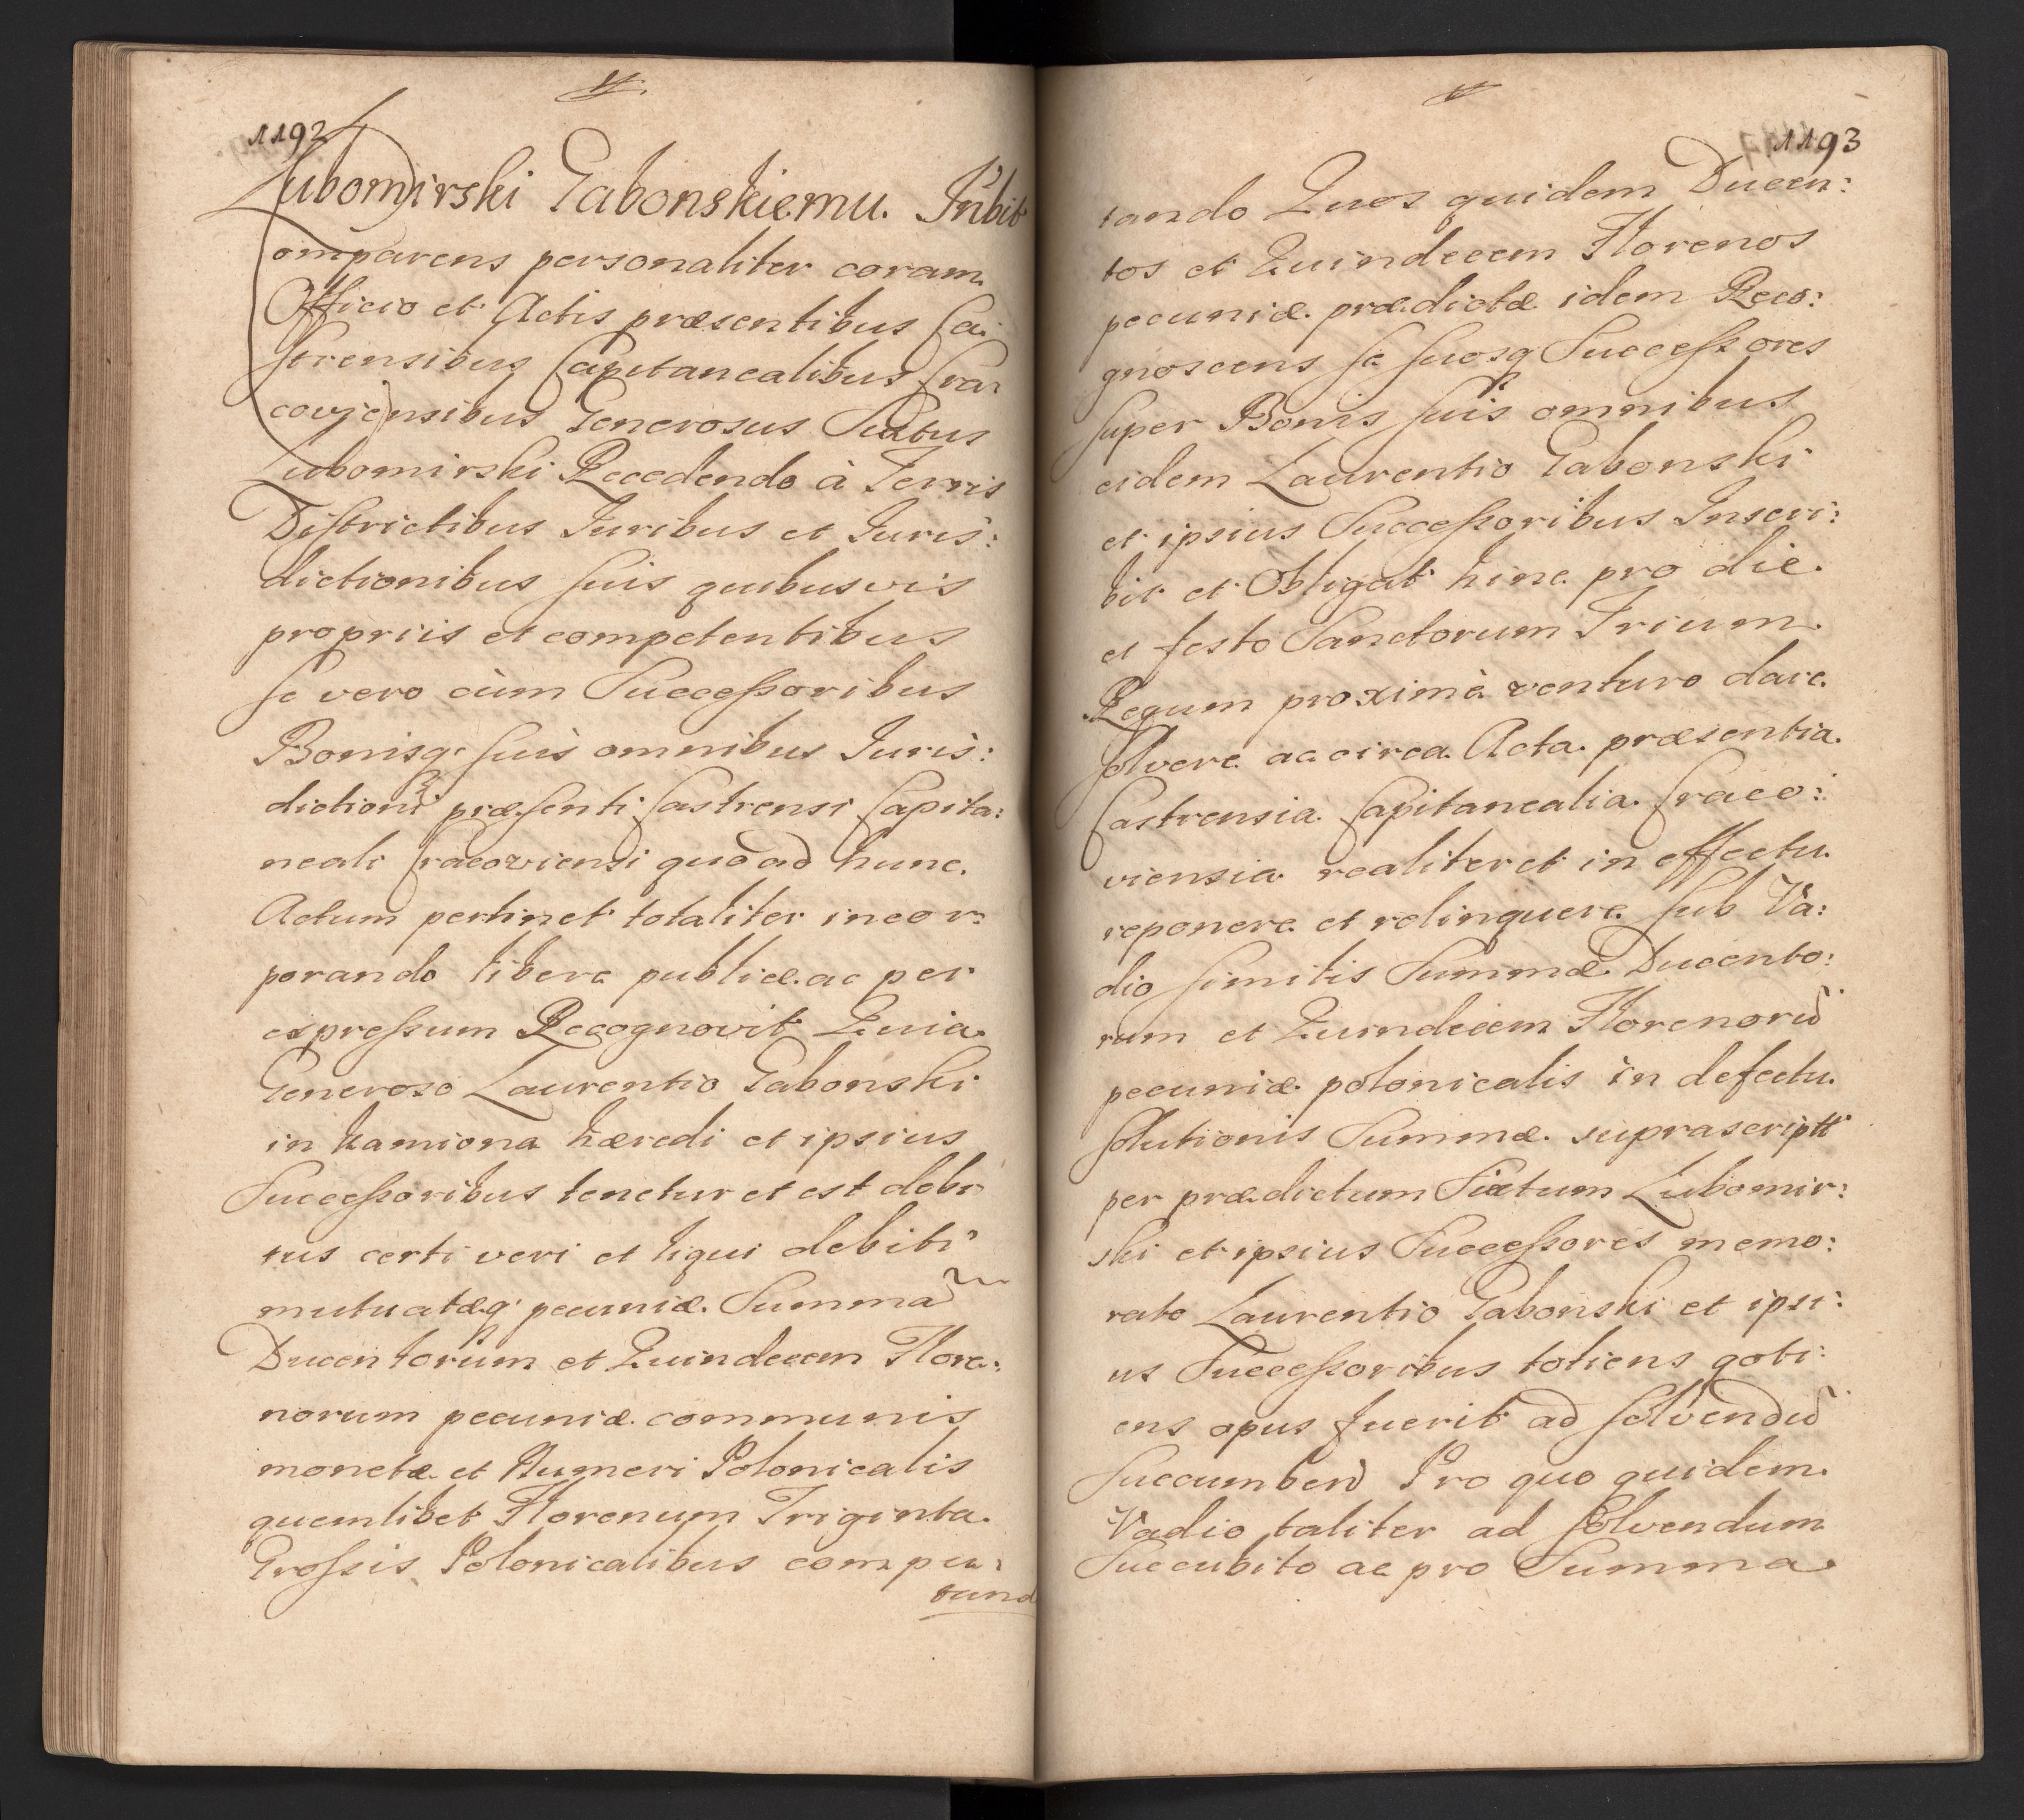 1192
Lubomirski Gabonskiemu. Inbit
Comparens personaliter coram
Officio et Actis præsentibus Ca:
strensibus Capitanealibus Cra:
coviensibus Generosus Sixtus
Lubomirski Recedendo à Terris
Districtibus Iuribus et Iuris:
dictionibus suis quibusvis
propriis et competentibus
se vero cùm Successoribus
Bonisq. suis omnibus Iuris:
dictioni præsenti Castrensi Capita:
neali Cracoviensi quo ad hunc
Actum pertinet totaliter incor:
porando libere publice ac per
expressum Recognovit Quia
Generoso Laurentio Gabonski
in Kamiona hæredi et ipsius
Successoribus tenetur et est debi
tus certi veri et liqui debiti
mutuatæq. pecuniæ Summã
Ducentorum et Quindecem Flore:
norum pecuniæ communis
monetæ et Numeri Polonicalis
quemlibet Florenum Triginta
Grossis Polonicalibus compu:
tand
1193
tando Quos quidem Ducen:
tos et Quindecem Florenos
pecuniæ prædictæ idem Reco:
gnoscens se suosq Successores
super Bonis suis omnibus
eidem Laurentio Gabonski
et ipsius Successoribus Inscri:
bit et Obligat hinc pro die
et festo Sanctorum Trium
Regum proximè venturo dare
solvere ac circa Acta præsentia
Castrensia Capitanealia Craco:
viensia realiter et in effectu
reponere et relinquere sub Va:
dio similis Summæ Ducento:
rum et Quindecem Florenorũ
pecuniæ polonicalis in defectu
solutionis Summæ suprascriptt
per prædictum Sixtum Lubomir:
ski et ipsius Successores memo:
rato Laurentio Gabonski et ipsi:
us Successoribus totiens qoti:
ens opus fuerit ad solvendũ
Succumben Pro quo quidem
Vadio taliter ad solvendum
Succubito ac pro Summa